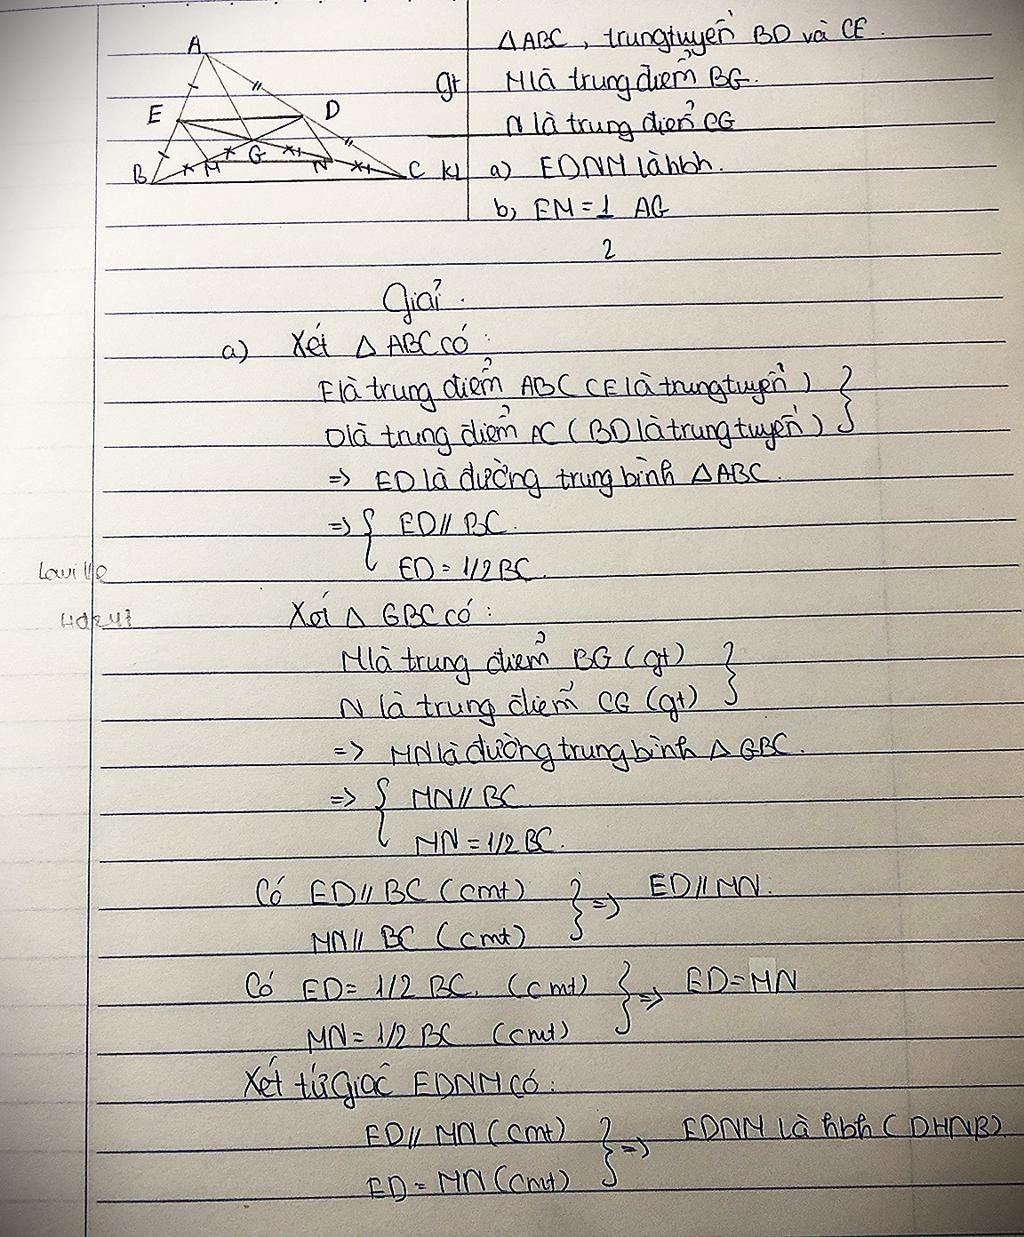 A
E
D
B
M
G
N
C
ΔABC, trung tuyến BD và CE.
gt
M là trung điểm BG.
N là trung điểm CG
kl
a) EDNM là hbh.
b, EM = 1/2 AG
Giải.
a) Xét Δ ABC có:
E là trung điểm AB (CE là trung tuyến) }
D là trung điểm AC (BD là trung tuyến) }
=> ED là đường trung bình ΔABC.
=> { ED // BC.
{ ED = 1/2 BC.
Xét Δ GBC có:
M là trung điểm BG (gt) }
N là trung điểm CG (gt) }
=> MN là đường trung bình Δ GBC.
=> { MN // BC
{ MN = 1/2 BC.
Có ED // BC (cmt) } => ED // MN.
MN // BC (cmt)
Có ED = 1/2 BC. (cmt) } => ED = MN
MN = 1/2 BC (cmt)
Xét tứ giác EDNM có:
ED // MN (cmt) } => EDNM là hbh (DHNB)
ED = MN (cmt)